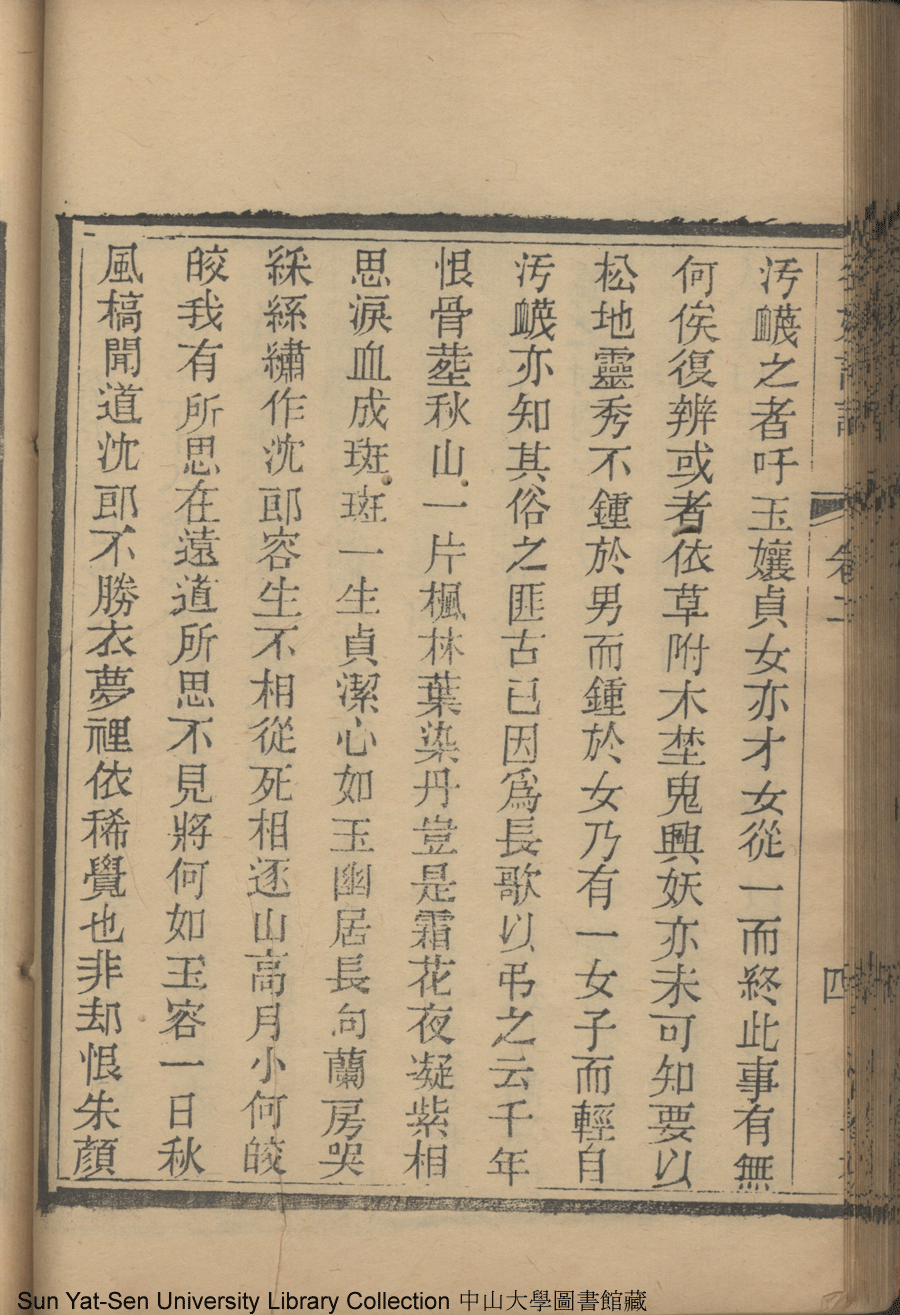 汚衊之者吁玉孃貞女亦才女從一而終此事有無
何俟復辨或者依草附木埜鬼興妖亦未可知要以
松地靈秀不鍾於男而鍾於女乃有一女子而輕自
汚衊亦知其俗之匪古已因爲長歌以弔之云千年
恨骨塟秋山一片楓林葉染丹豈是霜花夜凝紫相
思淚血成斑斑一生貞潔心如玉幽居長向蘭房哭
綵絲繡作沈郎容生不相從死相逐山高月小何皎
皎我有所思在遠道所思不見將何如玉容一日秋
風槁聞道沈郎不勝衣夢裡依稀覺也非却恨朱顏
卷二
四
Sun Yat-Sen University Library Collection 中山大學圖書館藏